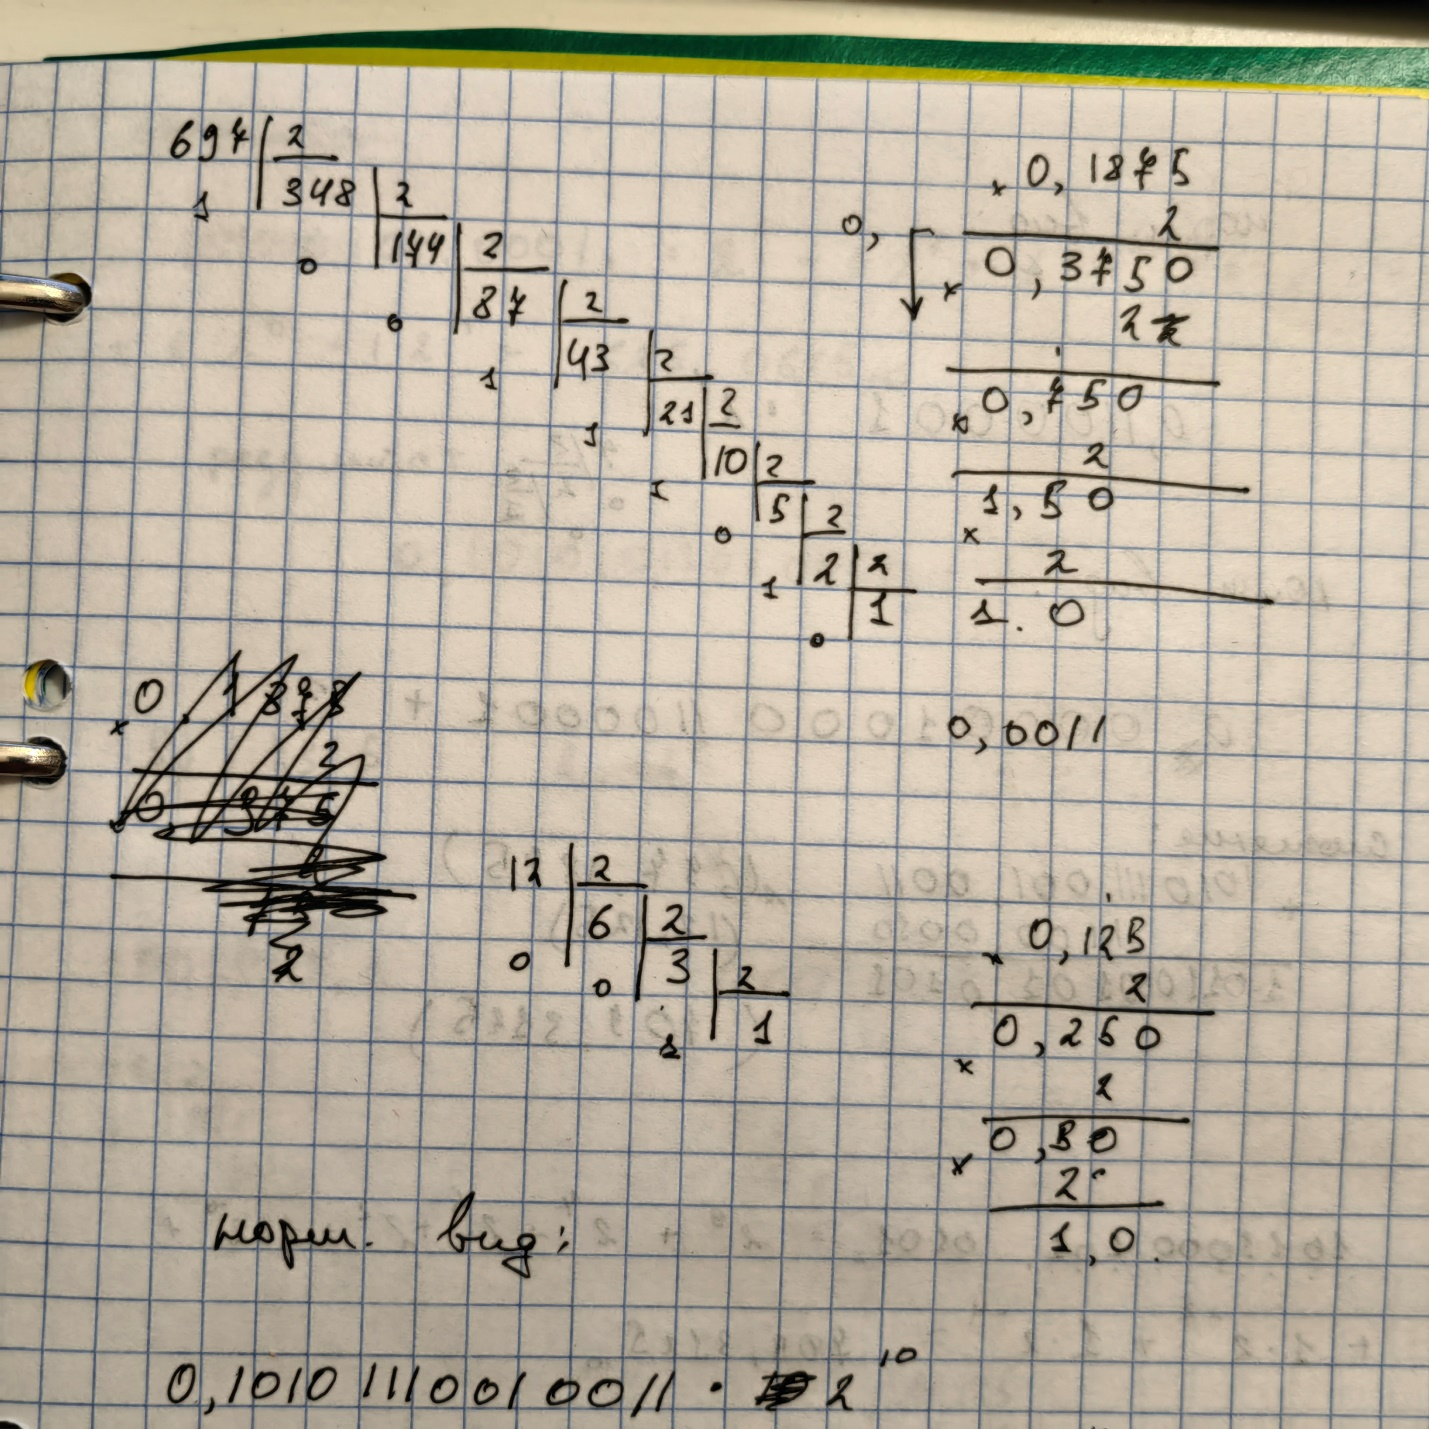 697 2
1 348 2
0 144 2
0 87 2
1 43 2
1 21 2
1 10 2
0 5 2
1 2 2
0 1
× 0,1875
2
0,
0,3750
×
2
0,750
×
2
1,50
×
2
1.0
0,0011
12 2
0 6 2
0 3 2
1 1
× 0,125
2
0,250
×
2
0,50
×
2
1,0
норм. вид:
0,10101110010011 · 2^10